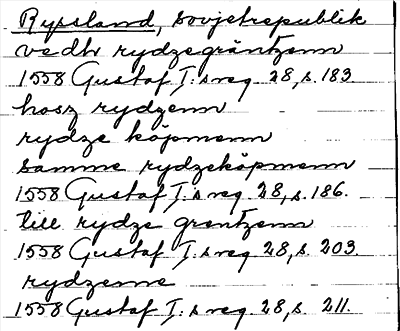 Ryssland, sovjetrepublik
vedhr rydzegräntzenn
1558 Gustaf I:s reg. 28, s. 183.
hosz rydzenn
rydze köpmenn
samme rydzeköpmenn
1558 Gustaf I:s reg. 28, s. 186.
till rydze grentzenn
1558 Gustaf I:s reg. 28, s. 203.
rydzerne
1558 Gustaf I:s reg. 28, s. 211.